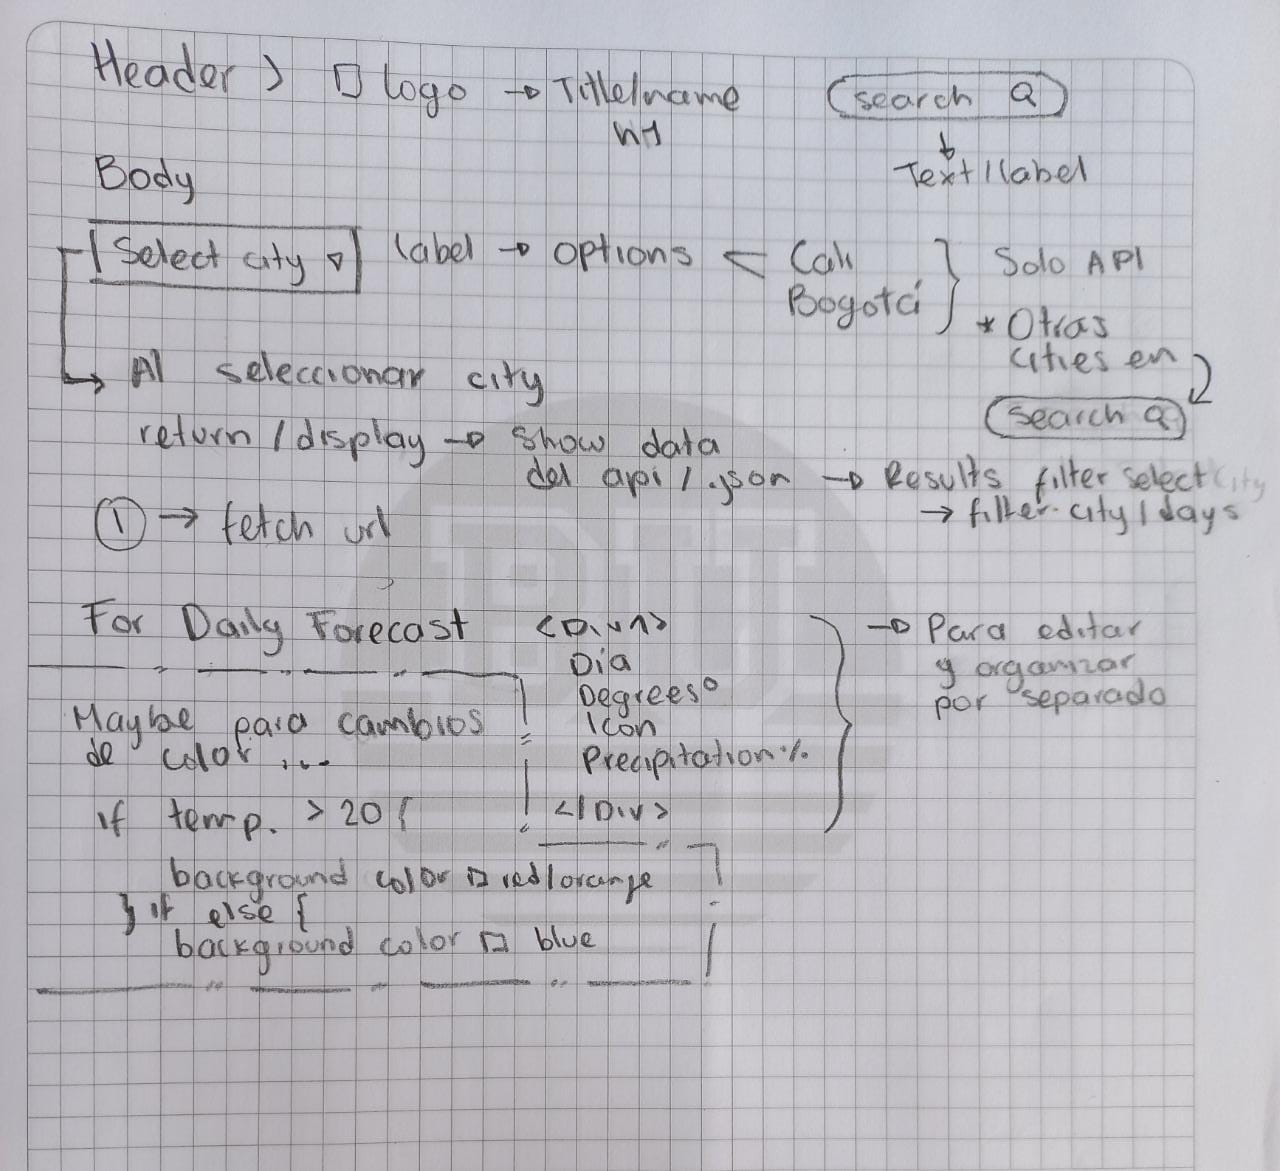 Header > □ logo → Title/name
h1
search Q
Text/label
Body
Select city ▽ label → options < Cali
Bogotá
Solo API
* Otras
cities en
search Q
Al seleccionar city
return / display → show data
del api / .json → Results filter select city
→ filter. city / days
① → fetch url
For Daily Forecast
<Div1>
Dia
Degrees°
Icon
Precipitation %
</Div>
→ Para editar
y organizar
por separado
Maybe para cambios
de color ...
if temp. > 20 {
background color □ red/orange
} if else {
background color □ blue